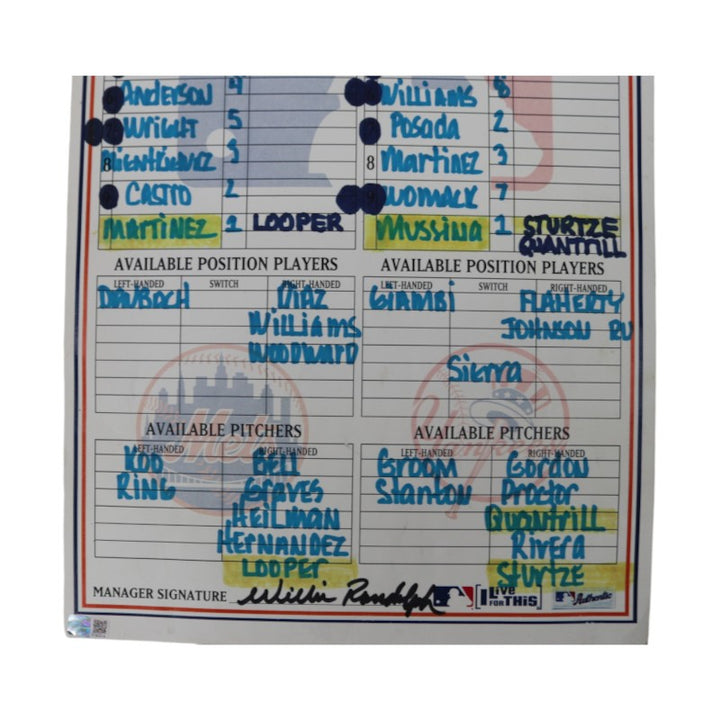 ANDERSON 4 WILLIAMS 8
WRIGHT 5 POSADA 2
8 MIENTKIEWICZ 3 8 MARTINEZ 3
CASTRO 2 WOMACK 7
MARTINEZ 1 LOOPER MUSSINA 1 STURTZE
QUANTRILL
AVAILABLE POSITION PLAYERS AVAILABLE POSITION PLAYERS
LEFT-HANDED SWITCH RIGHT-HANDED LEFT-HANDED SWITCH RIGHT-HANDED
DAUBACH DIAZ GIAMBI FLAHERTY
WILLIAMS JOHNSON RU
WOODWARD
Sierra
Mets Yankees
AVAILABLE PITCHERS AVAILABLE PITCHERS
LEFT-HANDED RIGHT-HANDED LEFT-HANDED RIGHT-HANDED
KOO BELL GROOM GORDON
RING GRAVES Stanton Proctor
HEILMAN QUANTRILL
HERNANDEZ Rivera
LOOPER STURTZE
MANAGER SIGNATURE Willie Randolph I Live FOR THIS Authentic